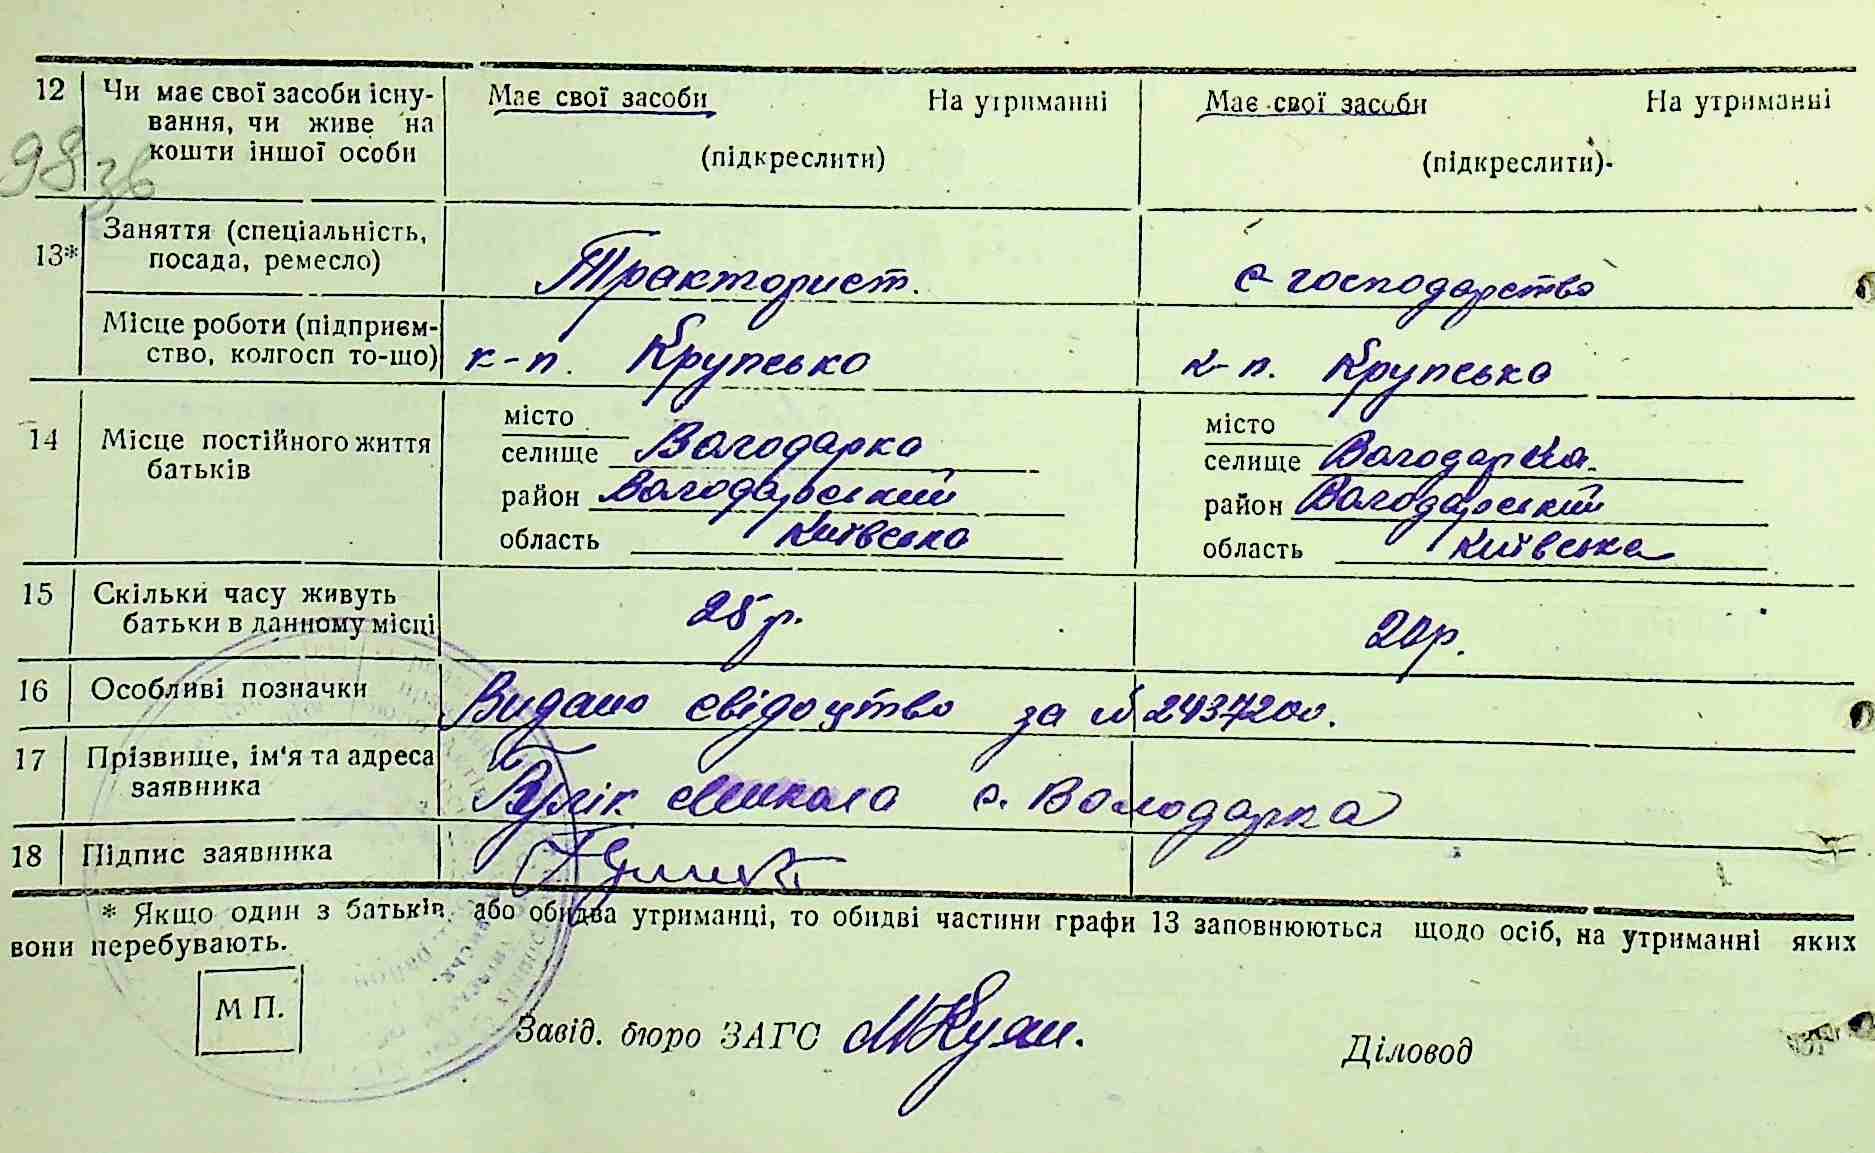 12 Чи має свої засоби існу- Має свої засоби На утриманні Має свої засоби На утриманні
вання, чи живе на
кошти іншої особи (підкреслити) (підкреслити)
98зв
13* Заняття (спеціальність,
посада, ремесло) Тракторист. с господарство
Місце роботи (підприєм-
ство, колгосп то-що) к-п. Крупсько к-п. Крупсько
14 Місце постійного життя
батьків
місто місто
селище Володарка селище Володарка.
район Володарський район Володарський
область Київсько область Київська
15 Скільки часу живуть
батьки в данному місці 25 р. 20р.
16 Особливі позначки Видано свідоцтво за № 2437200.
17 Прізвище, ім'я та адреса
заявника Гулік Микола с. Володарка
18 Підпис заявника
* Якщо один з батьків, або обидва утриманці, то обидві частини графи 13 заповнюються щодо осіб, на утриманні яких
вони перебувають.
М П.
Завід. бюро ЗАГС Діловод